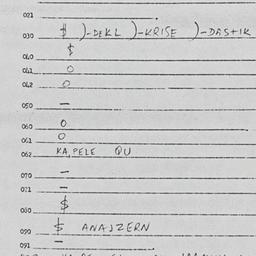 021 .
030 $ )-DEKL )-KRISE )-DASTIK
040 $
041 O
042 O
050 —
060 O
061 O
062 KAPELE QU
070 —
071 —
080 $
090 $ ANAJZERN
091 —